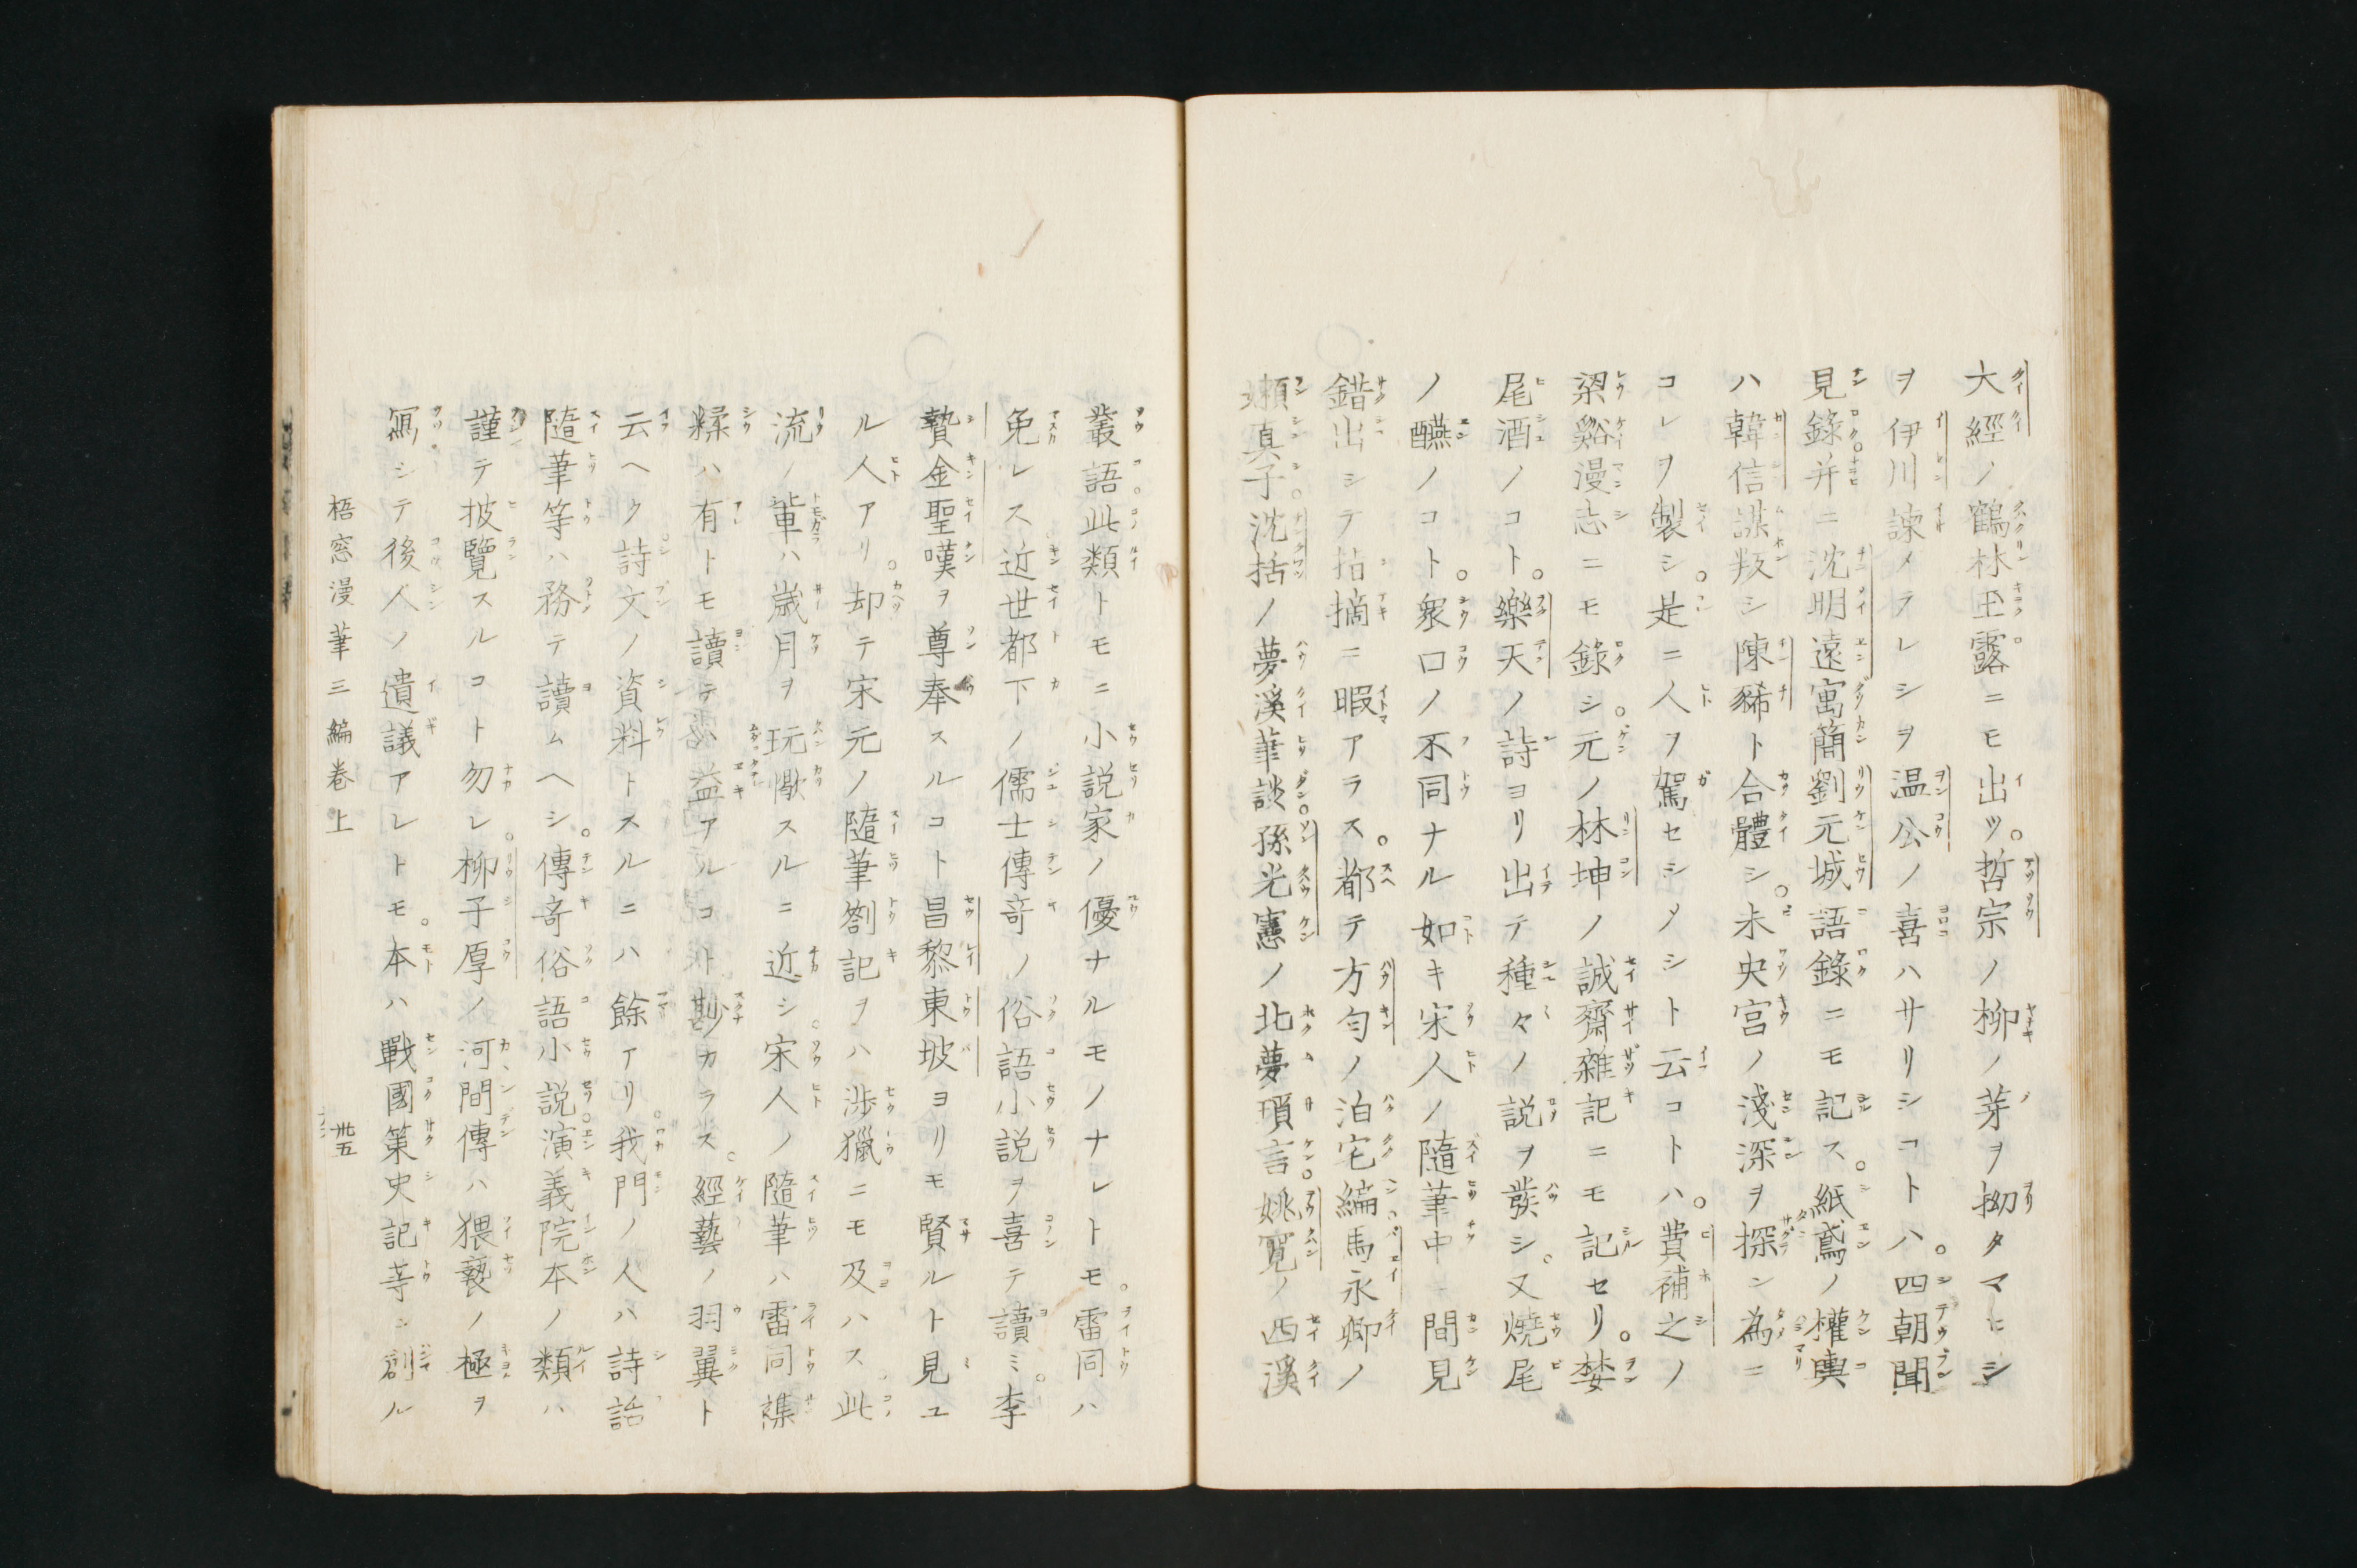 大經ノ鶴林玉露ニモ出ツ。哲宗ノ柳ノ芽ヲ拗タマヒシ
ヲ伊川諫メラレシヲ温公ノ喜ハサリシコトハ。四朝聞
見錄。并ニ沈明遠寓簡劉元城語錄ニモ記ス。紙鳶ノ權輿
ハ韓信謀叛シ陳豨ト合體シ。未央宮ノ淺深ヲ探ン為ニ
コレヲ製シ。是ニ人ヲ駕セシメシト云コトハ。費補之ノ
梁谿漫志ニモ錄シ。元ノ林坤ノ誠齋雜記ニモ記セリ。婪
尾酒ノコト。樂天ノ詩ヨリ出テ種々ノ説ヲ發シ。又燒尾
ノ醼ノコト。衆口ノ不同ナル如キ宋人ノ隨筆中間見
錯出シテ拈摘ニ暇アラス。都テ方勻ノ泊宅編馬永卿ノ
嬾真子。沈括ノ夢溪筆談。孫光憲ノ北夢瑣言。姚寛ノ西溪
叢語。此類トモニ小説家ノ優ナルモノナレトモ。雷同ハ
免レス近世都下ノ儒士傳奇ノ俗語小説ヲ喜テ讀ミ。李
贄金聖嘆ヲ尊奉スルコト昌黎東坡ヨリモ賢ルト見ユ
ル人アリ。却テ宋元ノ隨筆劄記ヲハ渉獵ニモ及ハス此
流ノ輩ハ歳月ヲ玩愒スルニ近シ。宋人ノ隨筆ハ雷同襍
糅ハ有トモ讀テ益アルコト尠カラス。經藝ノ羽翼ト
云ヘク詩文ノ資料トスルニハ餘アリ。我門ノ人ハ詩話
隨筆等ハ務テ讀ムヘシ。傳奇俗語小説。演義院本ノ類ハ
謹テ披覽スルコト勿レ。柳子厚ノ河間傳ハ猥褻ノ極ヲ
冩シテ後人ノ遺議アレトモ。本ハ戰國策史記等ニ創ル
梧窓漫筆三編卷上
卅五